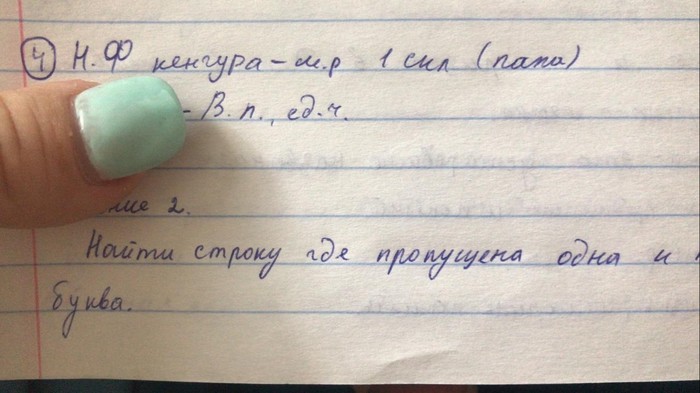 4 Н.Ф кенгура - м.р 1 скл (папа)
- В.п., ед.ч.
ние 2.
Найти строку где пропущена одна и
буква.